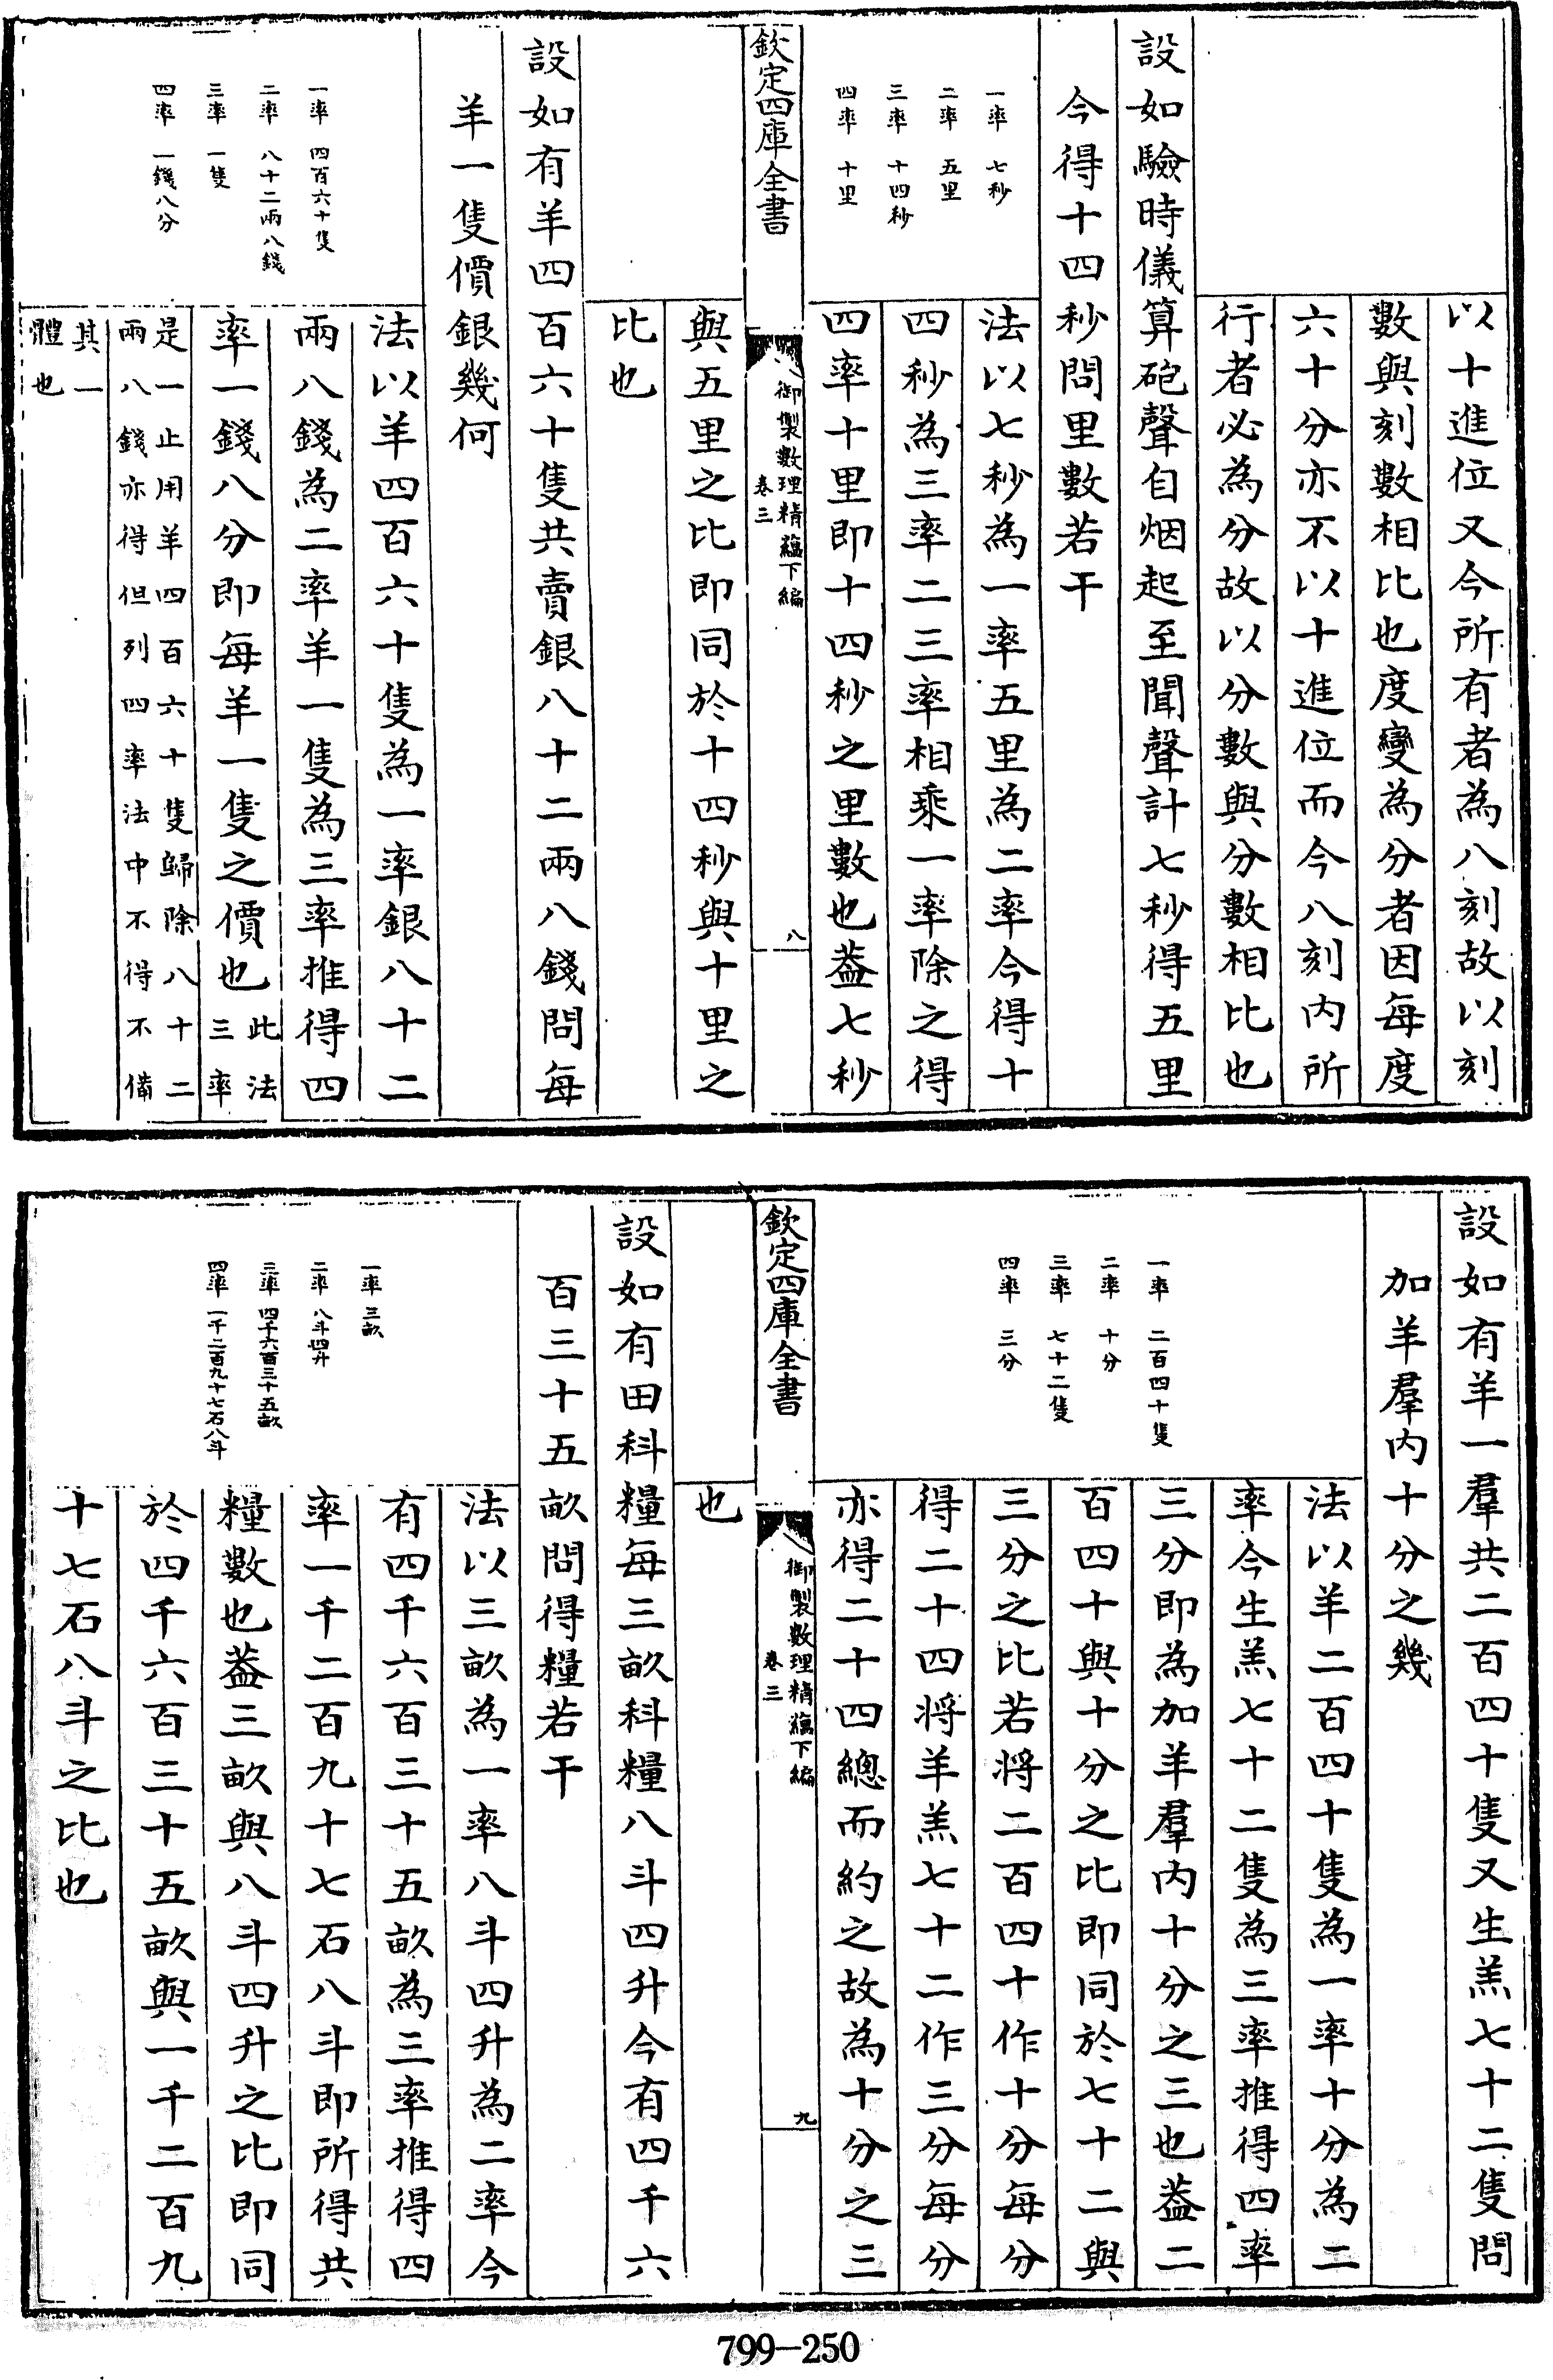 以十進位又今所有者為八刻故以刻
數與刻數相比也度變為分者因每度
六十分亦不以十進位而今八刻內所
行者必為分故以分數與分數相比也
設如驗時儀算砲聲自烟起至聞聲計七秒得五里
今得十四秒問里數若干
一率 七秒
二率 五里
三率 十四秒
四率 十里
法以七秒為一率五里為二率今得十
四秒為三率二三率相乘一率除之得
四率十里即十四秒之里數也葢七秒
欽定四庫全書
御製數理精蘊下編
卷三
八
與五里之比即同於十四秒與十里之
比也
設如有羊四百六十隻共賣銀八十二兩八錢問每
羊一隻價銀幾何
一率 四百六十隻
二率 八十二兩八錢
三率 一隻
四率 一錢八分
法以羊四百六十隻為一率銀八十二
兩八錢為二率羊一隻為三率推得四
率一錢八分即每羊一隻之價也此法
三率
是一止用羊四百六十隻歸除八十二
兩八錢亦得但列四率法中不得不備
其一
體也
設如有羊一羣共二百四十隻又生羔七十二隻問
加羊羣內十分之幾
一率 二百四十隻
二率 十分
三率 七十二隻
四率 三分
法以羊二百四十隻為一率十分為二
率今生羔七十二隻為三率推得四率
三分即為加羊羣內十分之三也葢二
百四十與十分之比即同於七十二與
三分之比若將二百四十作十分每分
得二十四將羊羔七十二作三分每分
亦得二十四總而約之故為十分之三
欽定四庫全書
御製數理精蘊下編
卷三
九
也
設如有田科糧每三畝科糧八斗四升今有四千六
百三十五畝問得糧若干
一率 三畝
二率 八斗四升
三率 四千六百三十五畝
四率 一千二百九十七石八斗
法以三畝為一率八斗四升為二率今
有四千六百三十五畝為三率推得四
率一千二百九十七石八斗即所得共
糧數也葢三畝與八斗四升之比即同
於四千六百三十五畝與一千二百九
十七石八斗之比也
799-250